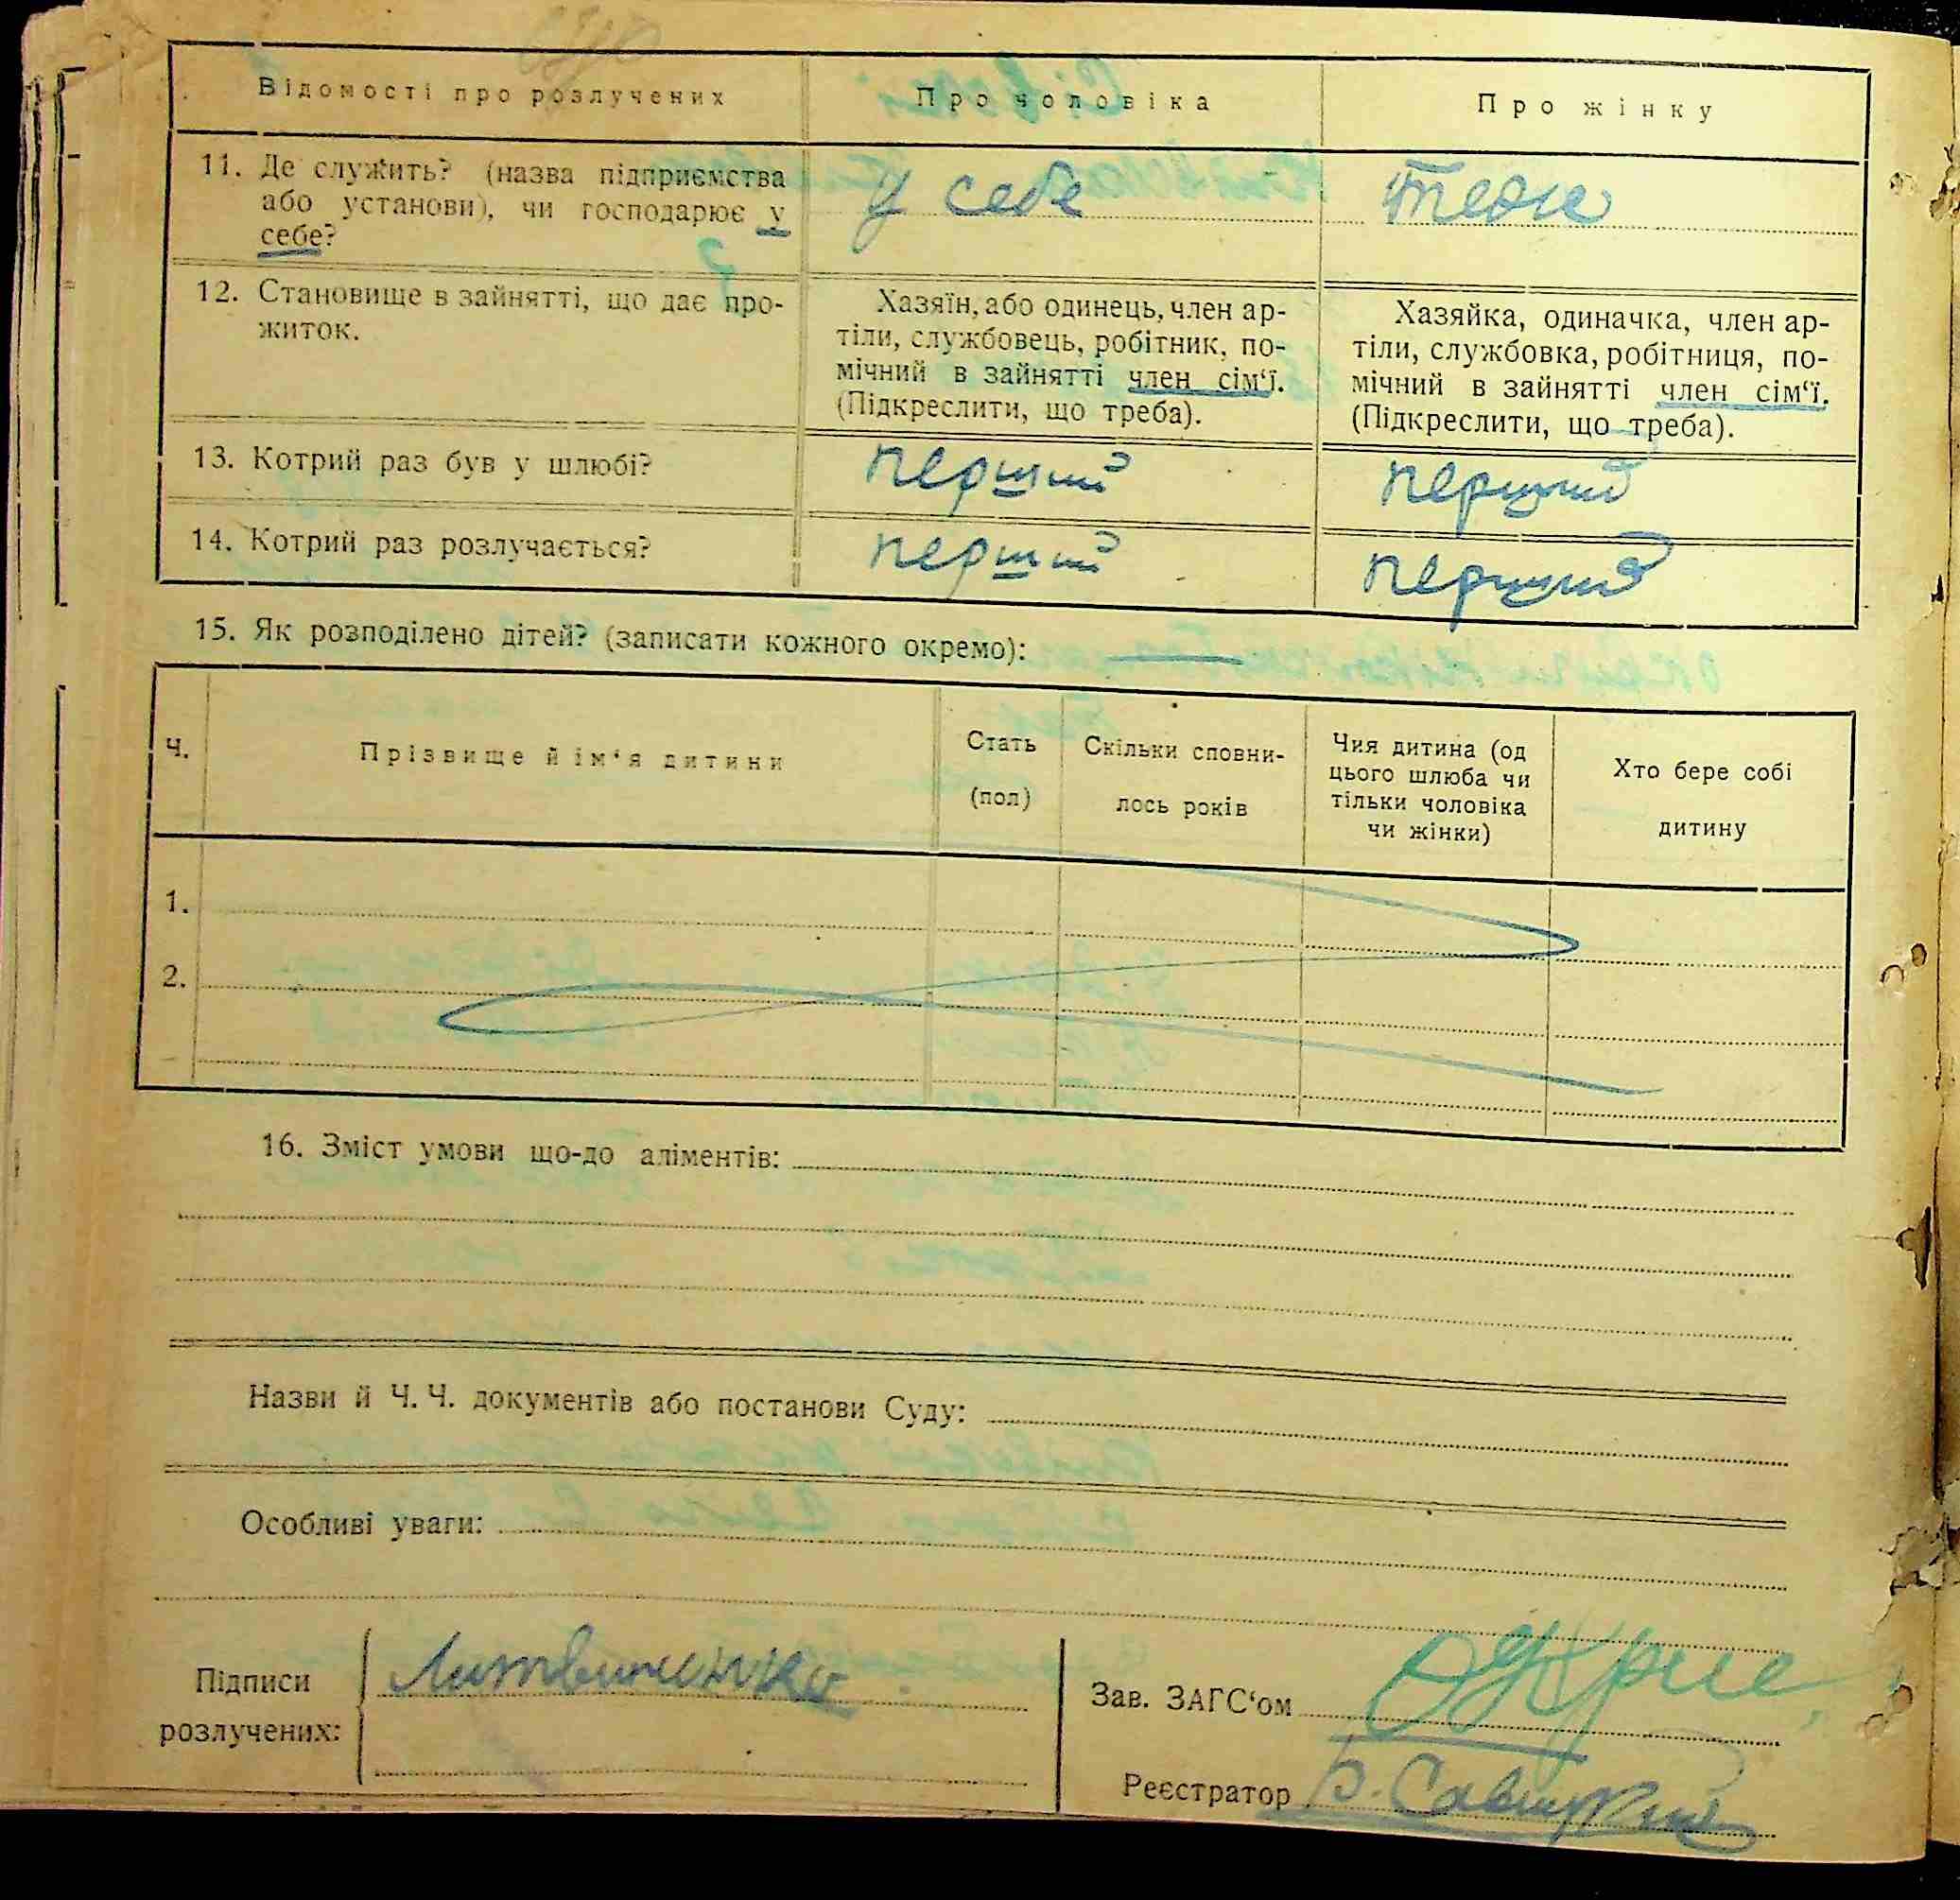 Відомості про розлучених
Про чоловіка
Про жінку
11. Де служить? (назва підприємства
або установи), чи господарює у
себе?
у себе
теж
12. Становище в зайнятті, що дає про-
житок.
Хазяїн, або одинець, член ар-
тіли, службовець, робітник, по-
мічний в зайнятті член сім‘ї.
(Підкреслити, що треба).
Хазяйка, одиначка, член ар-
тіли, службовка, робітниця, по-
мічний в зайнятті член сім‘ї.
(Підкреслити, що треба).
13. Котрий раз був у шлюбі?
перший
перший
14. Котрий раз розлучається?
перший
перший
15. Як розподілено дітей? (записати кожного окремо):
Ч.
Прізвище й ім‘я дитини
Стать
(пол)
Скільки сповни-
лось років
Чия дитина (од
цього шлюба чи
тільки чоловіка
чи жінки)
Хто бере собі
дитину
1.
2.
16. Зміст умови що-до аліментів:
Назви й Ч. Ч. документів або постанови Суду:
Особливі уваги:
Підписи
розлучених:
Зав. ЗАГС‘ом
Реєстратор